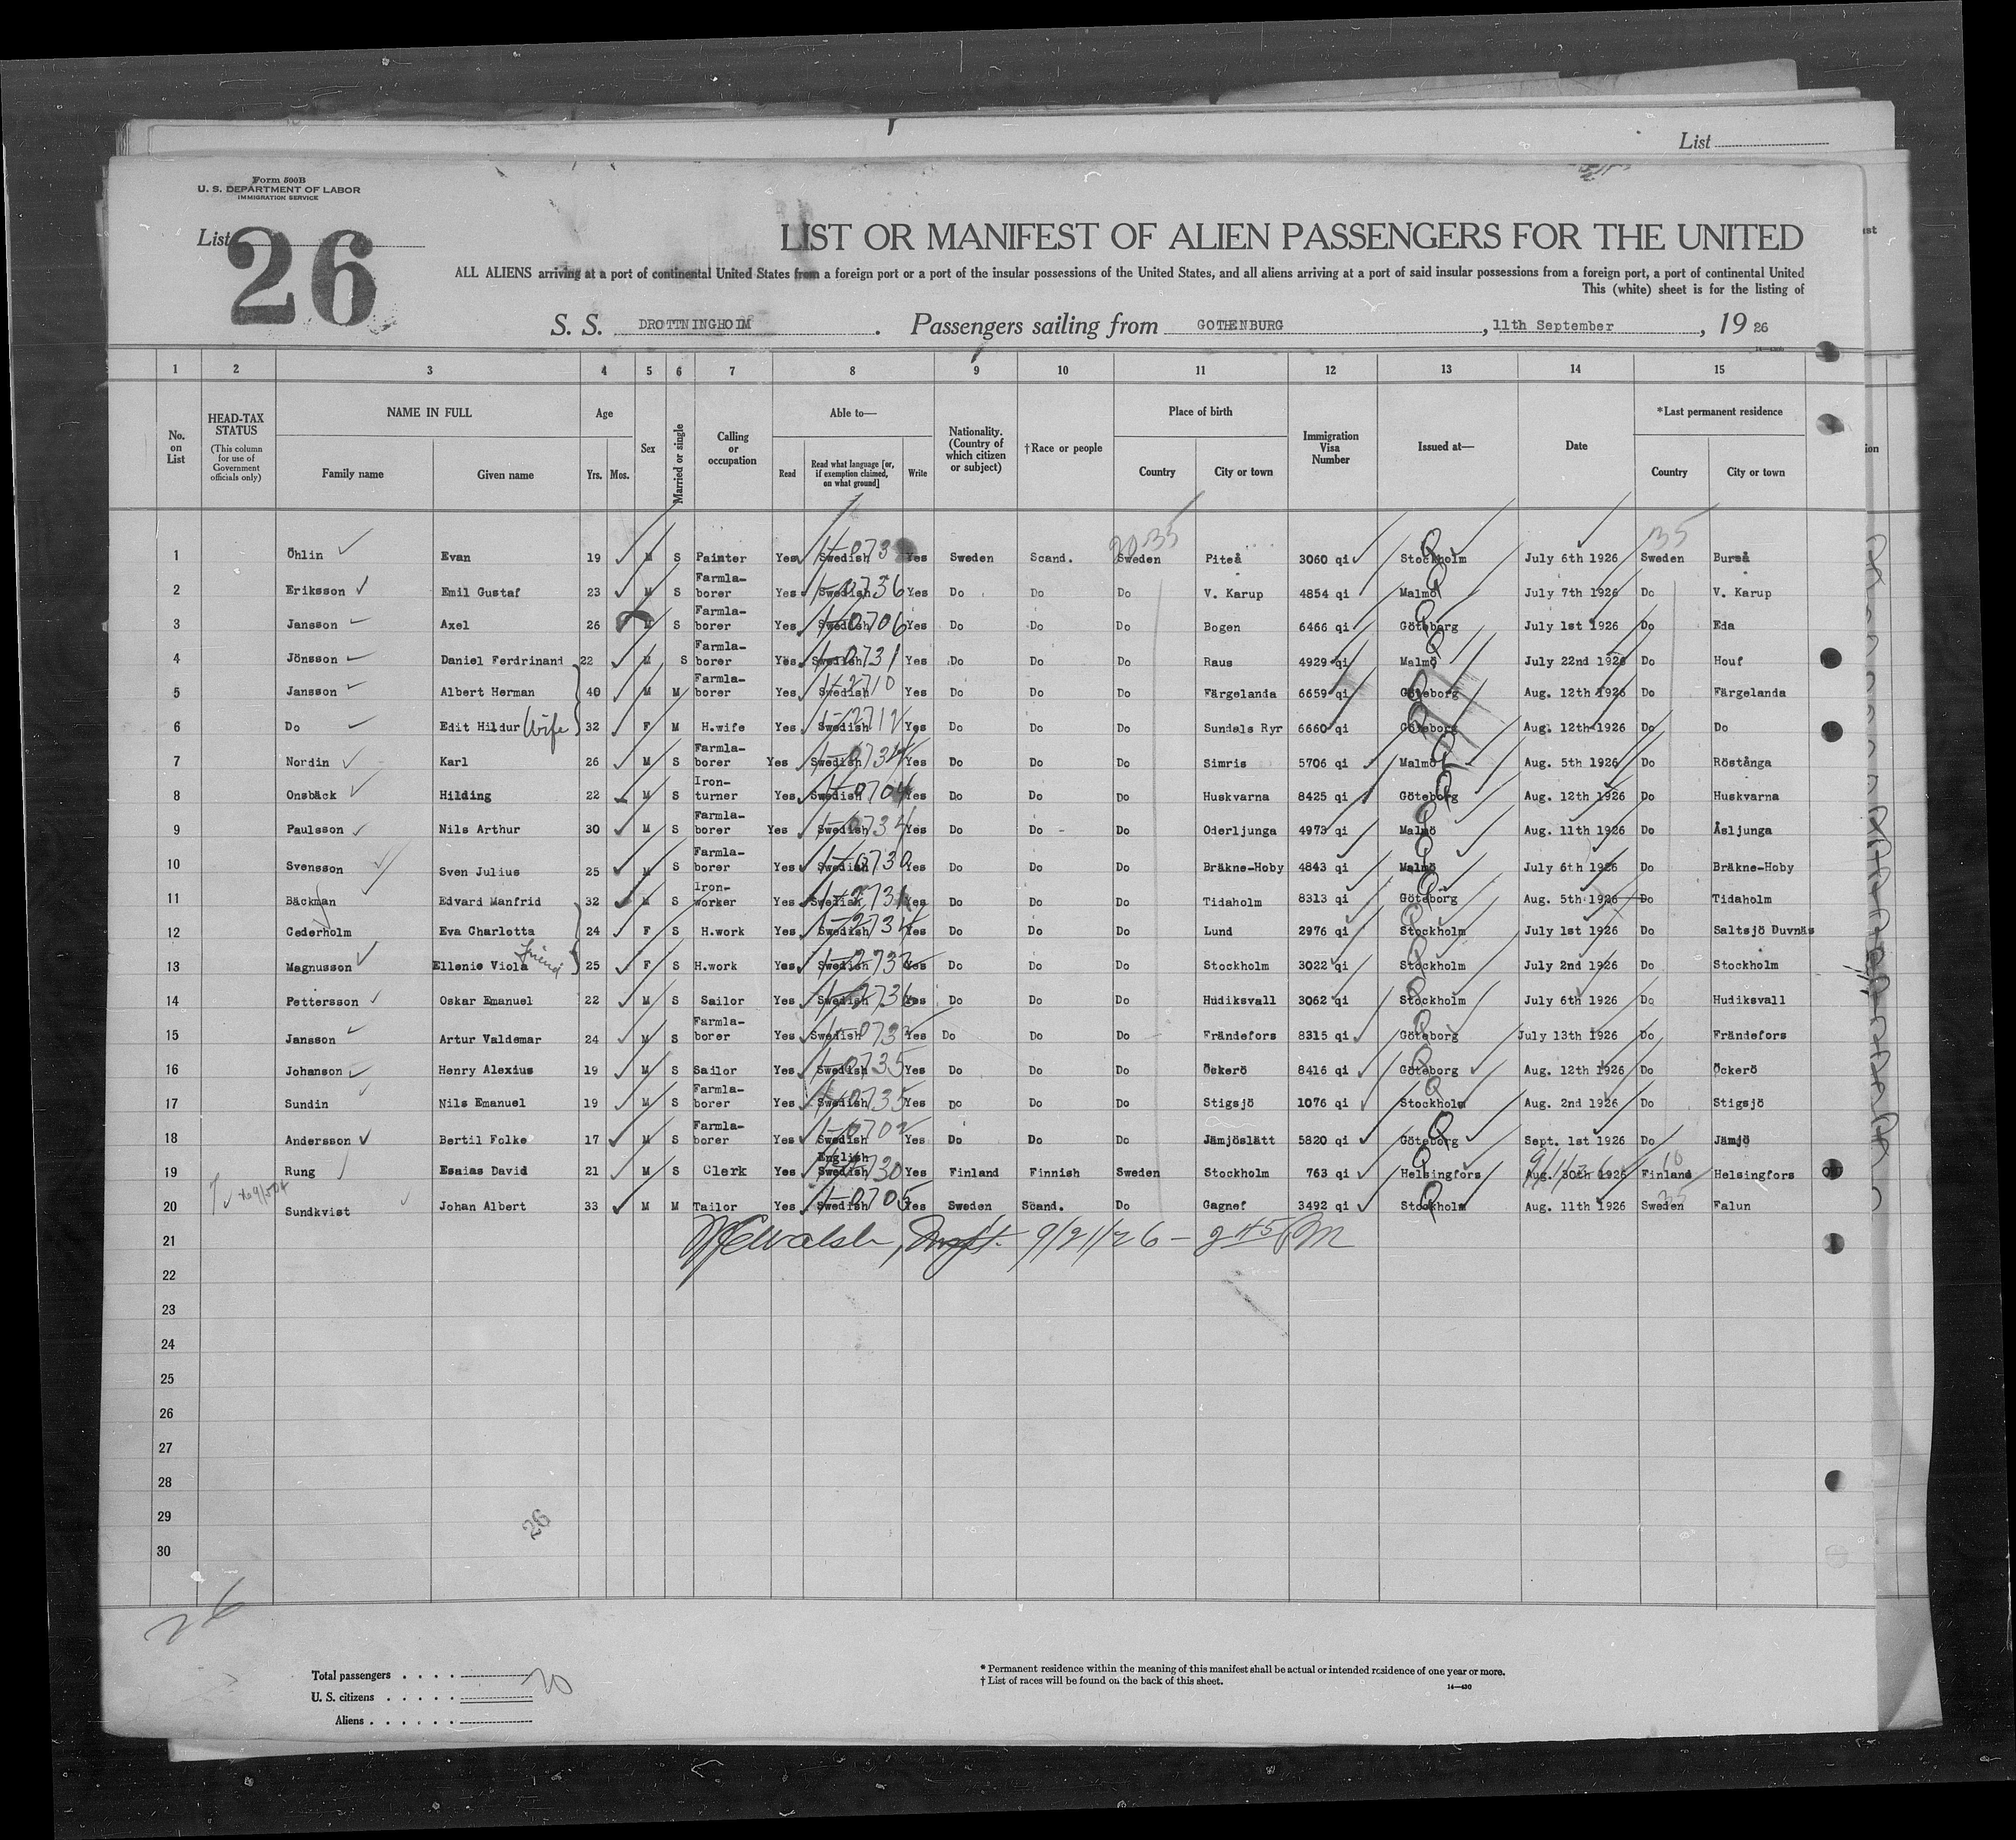 List
Form 500B
U. S. DEPARTMENT OF LABOR
IMMIGRATION SERVICE
List 26
LIST OR MANIFEST OF ALIEN PASSENGERS FOR THE UNITED
ALL ALIENS arriving at a port of continental United States from a foreign port or a port of the insular possessions of the United States, and all aliens arriving at a port of said insular possessions from a foreign port, a port of continental United
This (white) sheet is for the listing of
S. S. DROTTNINGHOLM . Passengers sailing from GOTHENBURG , 11th September , 19 26
1 2 3 4 5 6 7 8 9 10 11 12 13 14 15
No. on List
HEAD-TAX STATUS (This column for use of Government officials only)
NAME IN FULL Family name Given name
Age Yrs. Mos.
Sex
Married or single
Calling or occupation
Able to— Read Read what language [or, if exemption claimed, on what ground] Write
Nationality. (Country of which citizen or subject)
†Race or people
Place of birth Country City or town
Immigration Visa Number
Issued at—
Date
*Last permanent residence Country City or town
1 Öhlin Evan 19 M S Painter Yes Swedish Yes Sweden Scand. Sweden Piteå 3060 qi Stockholm July 6th 1926 Sweden Burså
2 Eriksson Emil Gustaf 23 M S Farmla-borer Yes Swedish Yes Do Do Do V. Karup 4854 qi Malmö July 7th 1926 Do V. Karup
3 Jansson Axel 26 M S Farmla-borer Yes Swedish Yes Do Do Do Bogen 6466 qi Göteborg July 1st 1926 Do Eda
4 Jönsson Daniel Ferdrinand 22 M S Farmla-borer Yes Swedish Yes Do Do Do Raus 4929 qi Malmö July 22nd 1926 Do Houf
5 Jansson Albert Herman 40 M M Farmla-borer Yes Swedish Yes Do Do Do Färgelanda 6659 qi Göteborg Aug. 12th 1926 Do Färgelanda
6 Do Edit Hildur Wife 32 F M H.wife Yes Swedish Yes Do Do Do Sundals Ryr 6660 qi Göteborg Aug. 12th 1926 Do Do
7 Nordin Karl 26 M S Farmla-borer Yes Swedish Yes Do Do Do Simris 5706 qi Malmö Aug. 5th 1926 Do Röstånga
8 Onsbäck Hilding 22 M S Iron-turner Yes Swedish Yes Do Do Do Huskvarna 8425 qi Göteborg Aug. 12th 1926 Do Huskvarna
9 Paulsson Nils Arthur 30 M S Farmla-borer Yes Swedish Yes Do Do Do Oderljunga 4973 qi Malmö Aug. 11th 1926 Do Åsljunga
10 Svensson Sven Julius 25 M S Farmla-borer Yes Swedish Yes Do Do Do Bräkne-Hoby 4843 qi Malmö July 6th 1926 Do Bräkne-Hoby
11 Bäckman Edvard Manfrid 32 M S Iron-worker Yes Swedish Yes Do Do Do Tidaholm 8313 qi Göteborg Aug. 5th 1926 Do Tidaholm
12 Cederholm Eva Charlotta 24 F S H.work Yes Swedish Yes Do Do Do Lund 2976 qi Stockholm July 1st 1926 Do Saltsjö Duvnäs
13 Magnusson Ellenie Viola friend 25 F S H.work Yes Swedish Yes Do Do Do Stockholm 3022 qi Stockholm July 2nd 1926 Do Stockholm
14 Pettersson Oskar Emanuel 22 M S Sailor Yes Swedish Yes Do Do Do Hudiksvall 3062 qi Stockholm July 6th 1926 Do Hudiksvall
15 Jansson Artur Valdemar 24 M S Farmla-borer Yes Swedish Yes Do Do Do Frändefors 8315 qi Göteborg July 13th 1926 Do Frändefors
16 Johanson Henry Alexius 19 M S Sailor Yes Swedish Yes Do Do Do Öckerö 8416 qi Göteborg Aug. 12th 1926 Do Öckerö
17 Sundin Nils Emanuel 19 M S Farmla-borer Yes Swedish Yes Do Do Do Stigsjö 1076 qi Stockholm Aug. 2nd 1926 Do Stigsjö
18 Andersson Bertil Folke 17 M S Farmla-borer Yes Swedish Yes Do Do Do Jämjöslätt 5820 qi Göteborg Sept. 1st 1926 Do Jämjö
19 Rung Esaias David 21 M S Clerk Yes English Swedish Yes Finland Finnish Sweden Stockholm 763 qi Helsingfors Aug. 30th 1926 Finland Helsingfors
20 Sundkvist Johan Albert 33 M M Tailor Yes Swedish Yes Sweden Scand. Do Gagnef 3492 qi Stockholm Aug. 11th 1926 Sweden Falun
21 Walsh, 9/21/26 - 2 45 PM
22
23
24
25
26
27
28
29
30
26
26
Total passengers 20
U. S. citizens
Aliens
* Permanent residence within the meaning of this manifest shall be actual or intended residence of one year or more.
† List of races will be found on the back of this sheet.
14—430